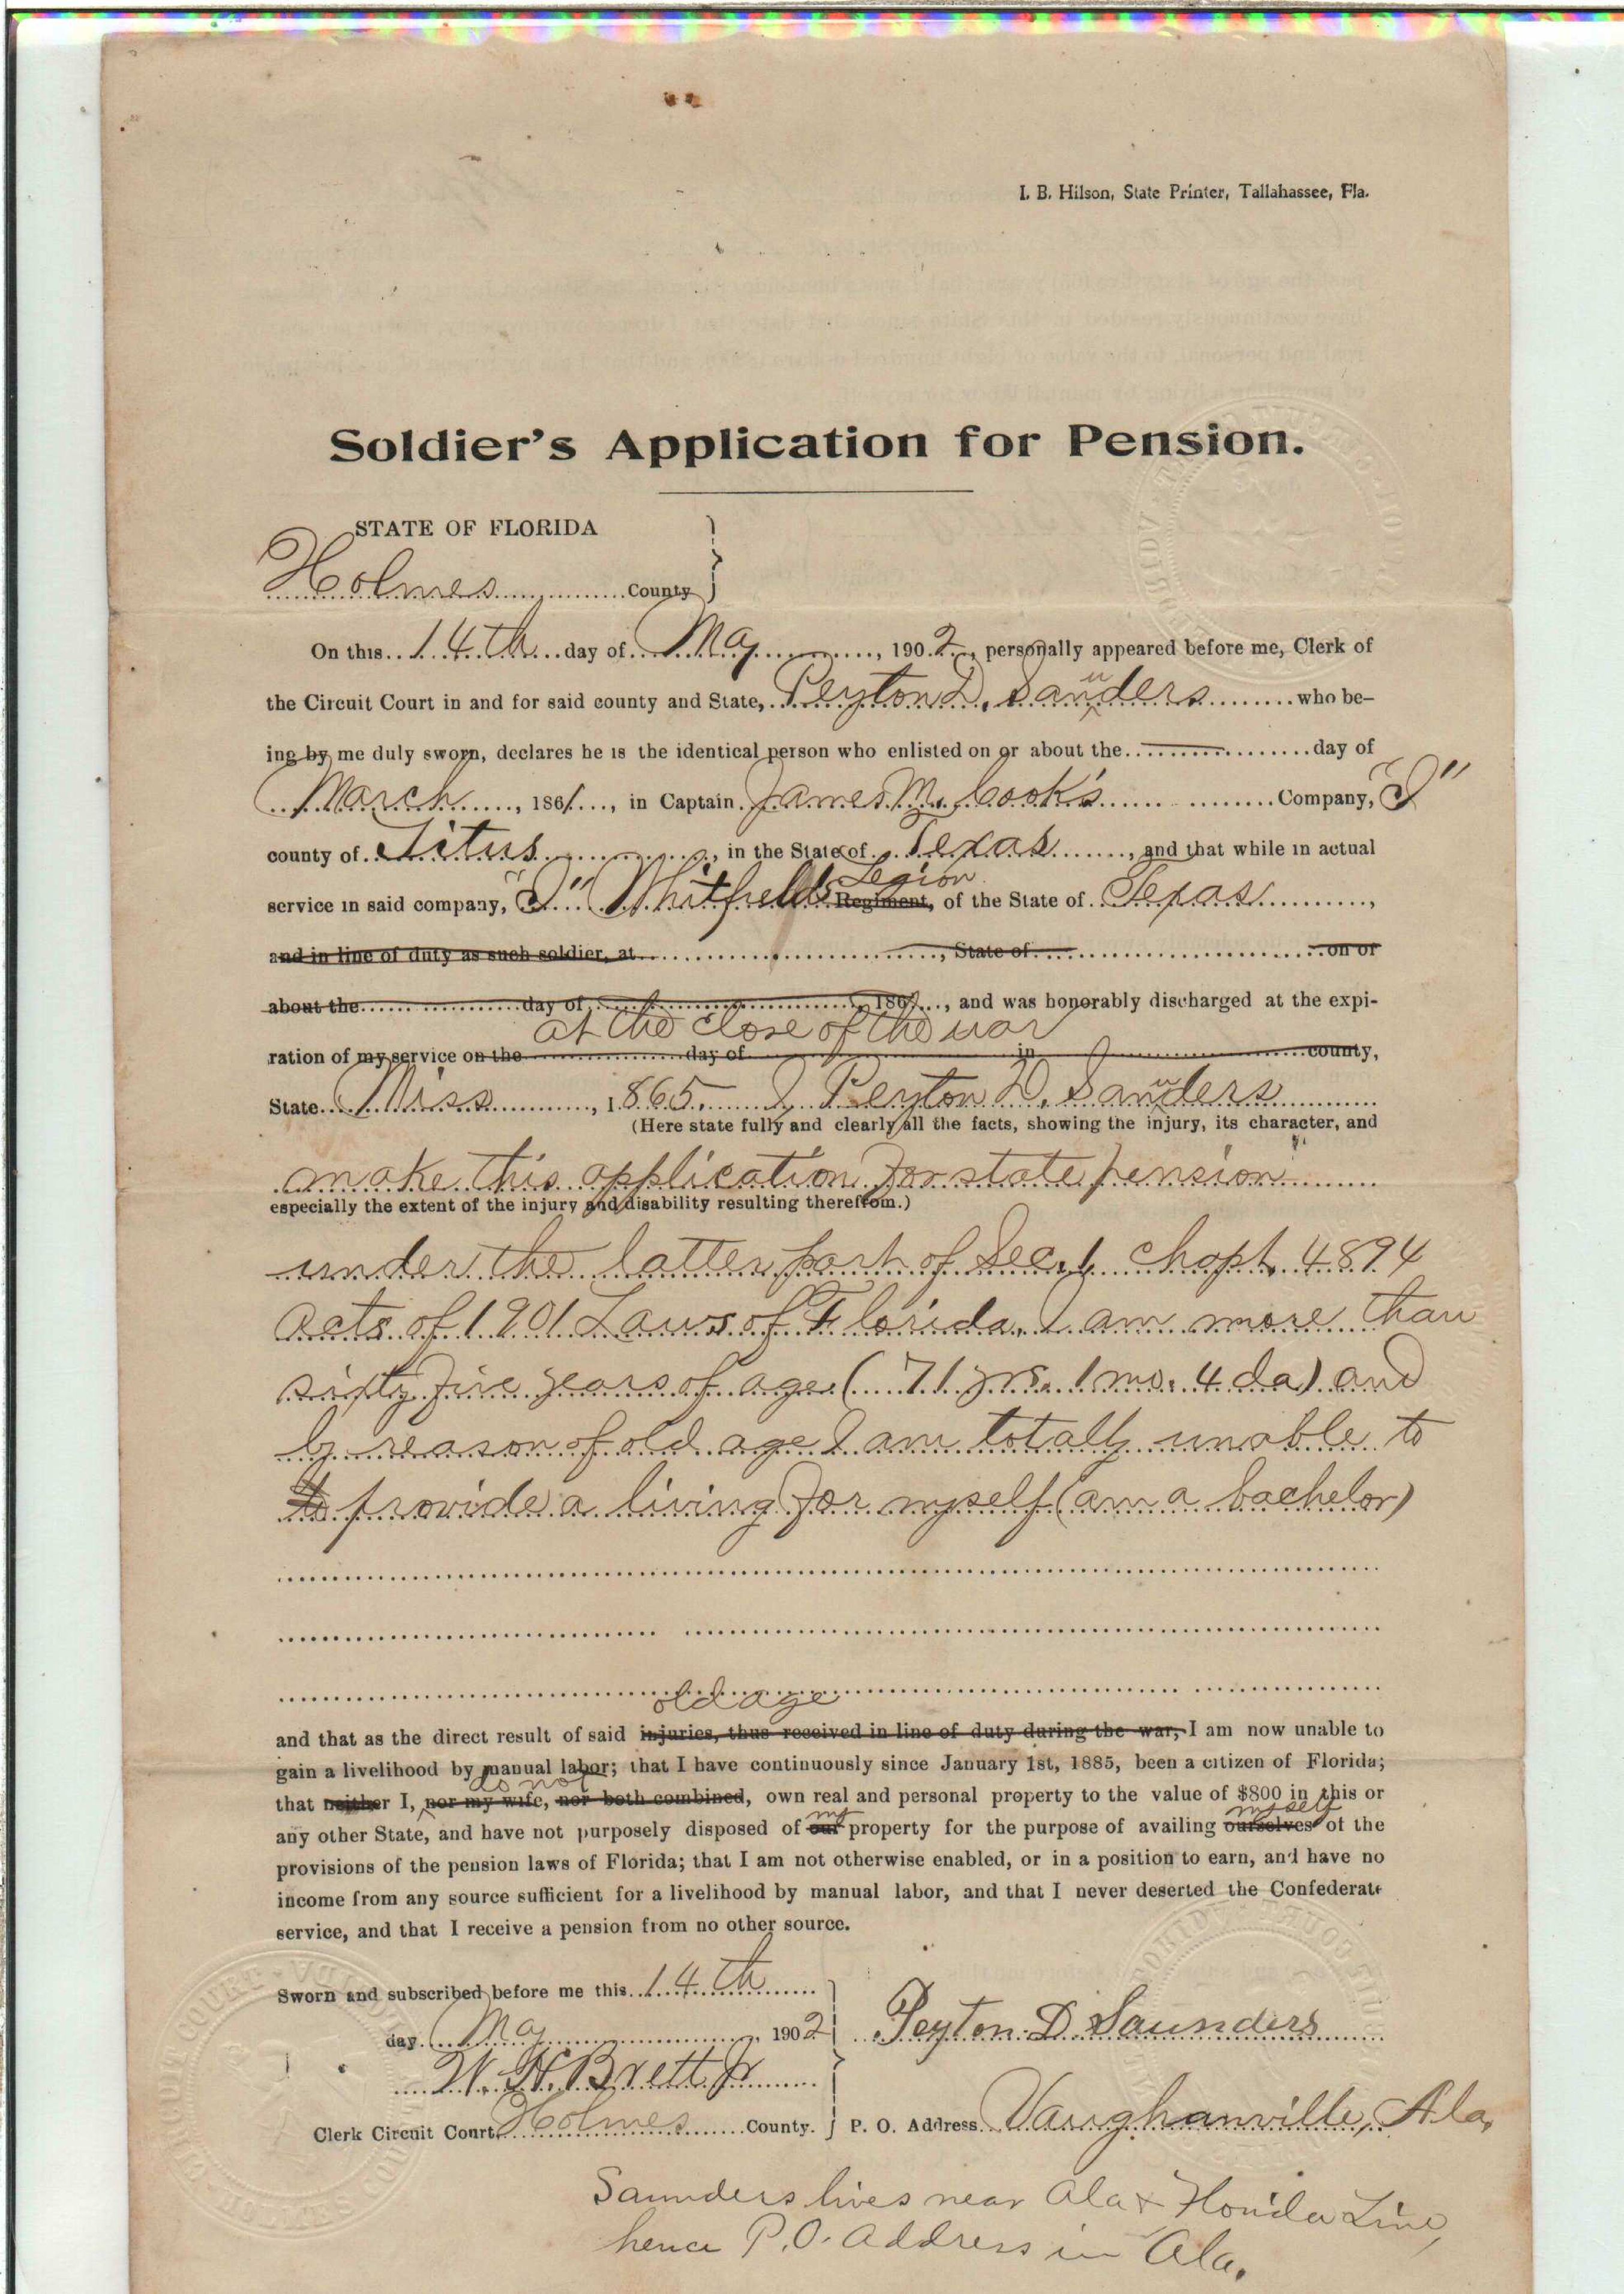 I. B. Hilson, State Printer, Tallahassee, Fla.
Soldier's Application for Pension.
STATE OF FLORIDA
Holmes County
On this 14th day of May, 1902, personally appeared before me, Clerk of
the Circuit Court in and for said county and State, Peyton D. Saunders who be-
ing by me duly sworn, declares he is the identical person who enlisted on or about the ——— day of
March, 1861, in Captain James M. Cook's Company, "I"
county of Titus, in the State of Texas, and that while in actual
Legion
service in said company, "I" Whitfield's Regiment, of the State of Texas,
and in line of duty as such soldier, at , State of on or
about the day of , 186 , and was honorably discharged at the expi-
at the close of the war
ration of my service on the day of in county,
State Miss, 1865. I Peyton D. Saunders
(Here state fully and clearly all the facts, showing the injury, its character, and
make this application for state pension
especially the extent of the injury and disability resulting therefrom.)
under the latter part of Sec. 1 Chapt. 4894
acts of 1901 Laws of Florida. I am more than
sixty five years of age (71 yrs. 1 mo. 4 da) and
by reason of old age I am totally unable to
to provide a living for myself (am a bachelor)
old age
and that as the direct result of said injuries, thus received in line of duty during the war, I am now unable to
gain a livelihood by manual labor; that I have continuously since January 1st, 1885, been a citizen of Florida;
do not
that neither I, nor my wife, nor both combined, own real and personal property to the value of $800 in this or
my myself
any other State, and have not purposely disposed of our property for the purpose of availing ourselves of the
provisions of the pension laws of Florida; that I am not otherwise enabled, or in a position to earn, and have no
income from any source sufficient for a livelihood by manual labor, and that I never deserted the Confederate
service, and that I receive a pension from no other source.
Sworn and subscribed before me this 14th
day May, 1902 Peyton D Saunders
W. H. Brett Jr
Clerk Circuit Court Holmes County. P. O. Address Vaughanville, Ala.
Saunders lives near Ala & Florida Line,
hence P.O. Address in Ala.